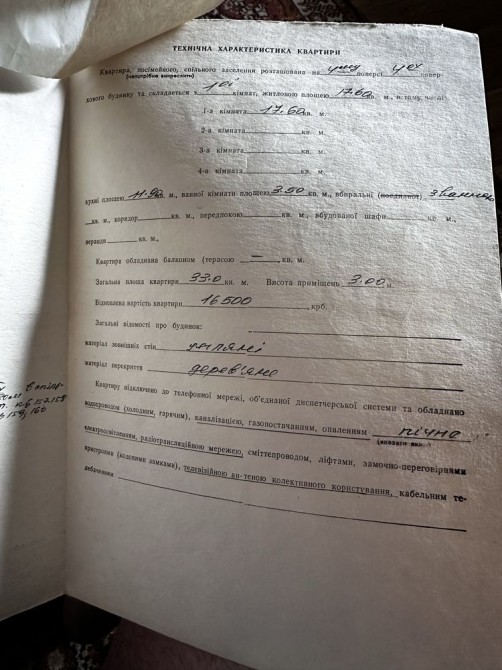 ТЕХНІЧНА ХАРАКТЕРИСТИКА КВАРТИРИ
Квартира, посімейного, спільного заселення розташована на поверсі повер-
(непотрібне викреслити)
хового будинку та складається з 1ої кімнат, житловою площею 17.60 кв. м., в тому числі
1-а кімната 17.60 кв. м.
2-а кімната кв. м.
3-а кімната кв. м.
4-а кімната кв. м.
кухні площею 11.90 кв. м., ванної кімнати площею 3.50 кв. м., вбиральні (поєднаної) з ванною
кв. м., коридор кв. м., передпокою кв. м., вбудованої шафи кв. м.,
веранди кв. м.,
Квартира обладнана балконом (терасою — кв. м.
Загальна площа квартири 33.0 кв. м. Висота приміщень 3.00 м
Відновлена вартість квартири 16500 крб.
Загальні відомості про будинок:
матеріал зовнішніх стін
матеріал перекриття дерев'яне
Квартиру відключено до телефонної мережі, об'єднаної диспетчерської системи та обладнано
водопроводом (холодним, гарячим), каналізацією, газопостачанням, опаленням пічне
електроосвітленням, радіотрансляційною мережею, сміттєпроводом, ліфтами, замочно-переговірними
пристроями (кодовими замками), телевізійною ан-теною колективного користування, кабельним те-
лебаченням